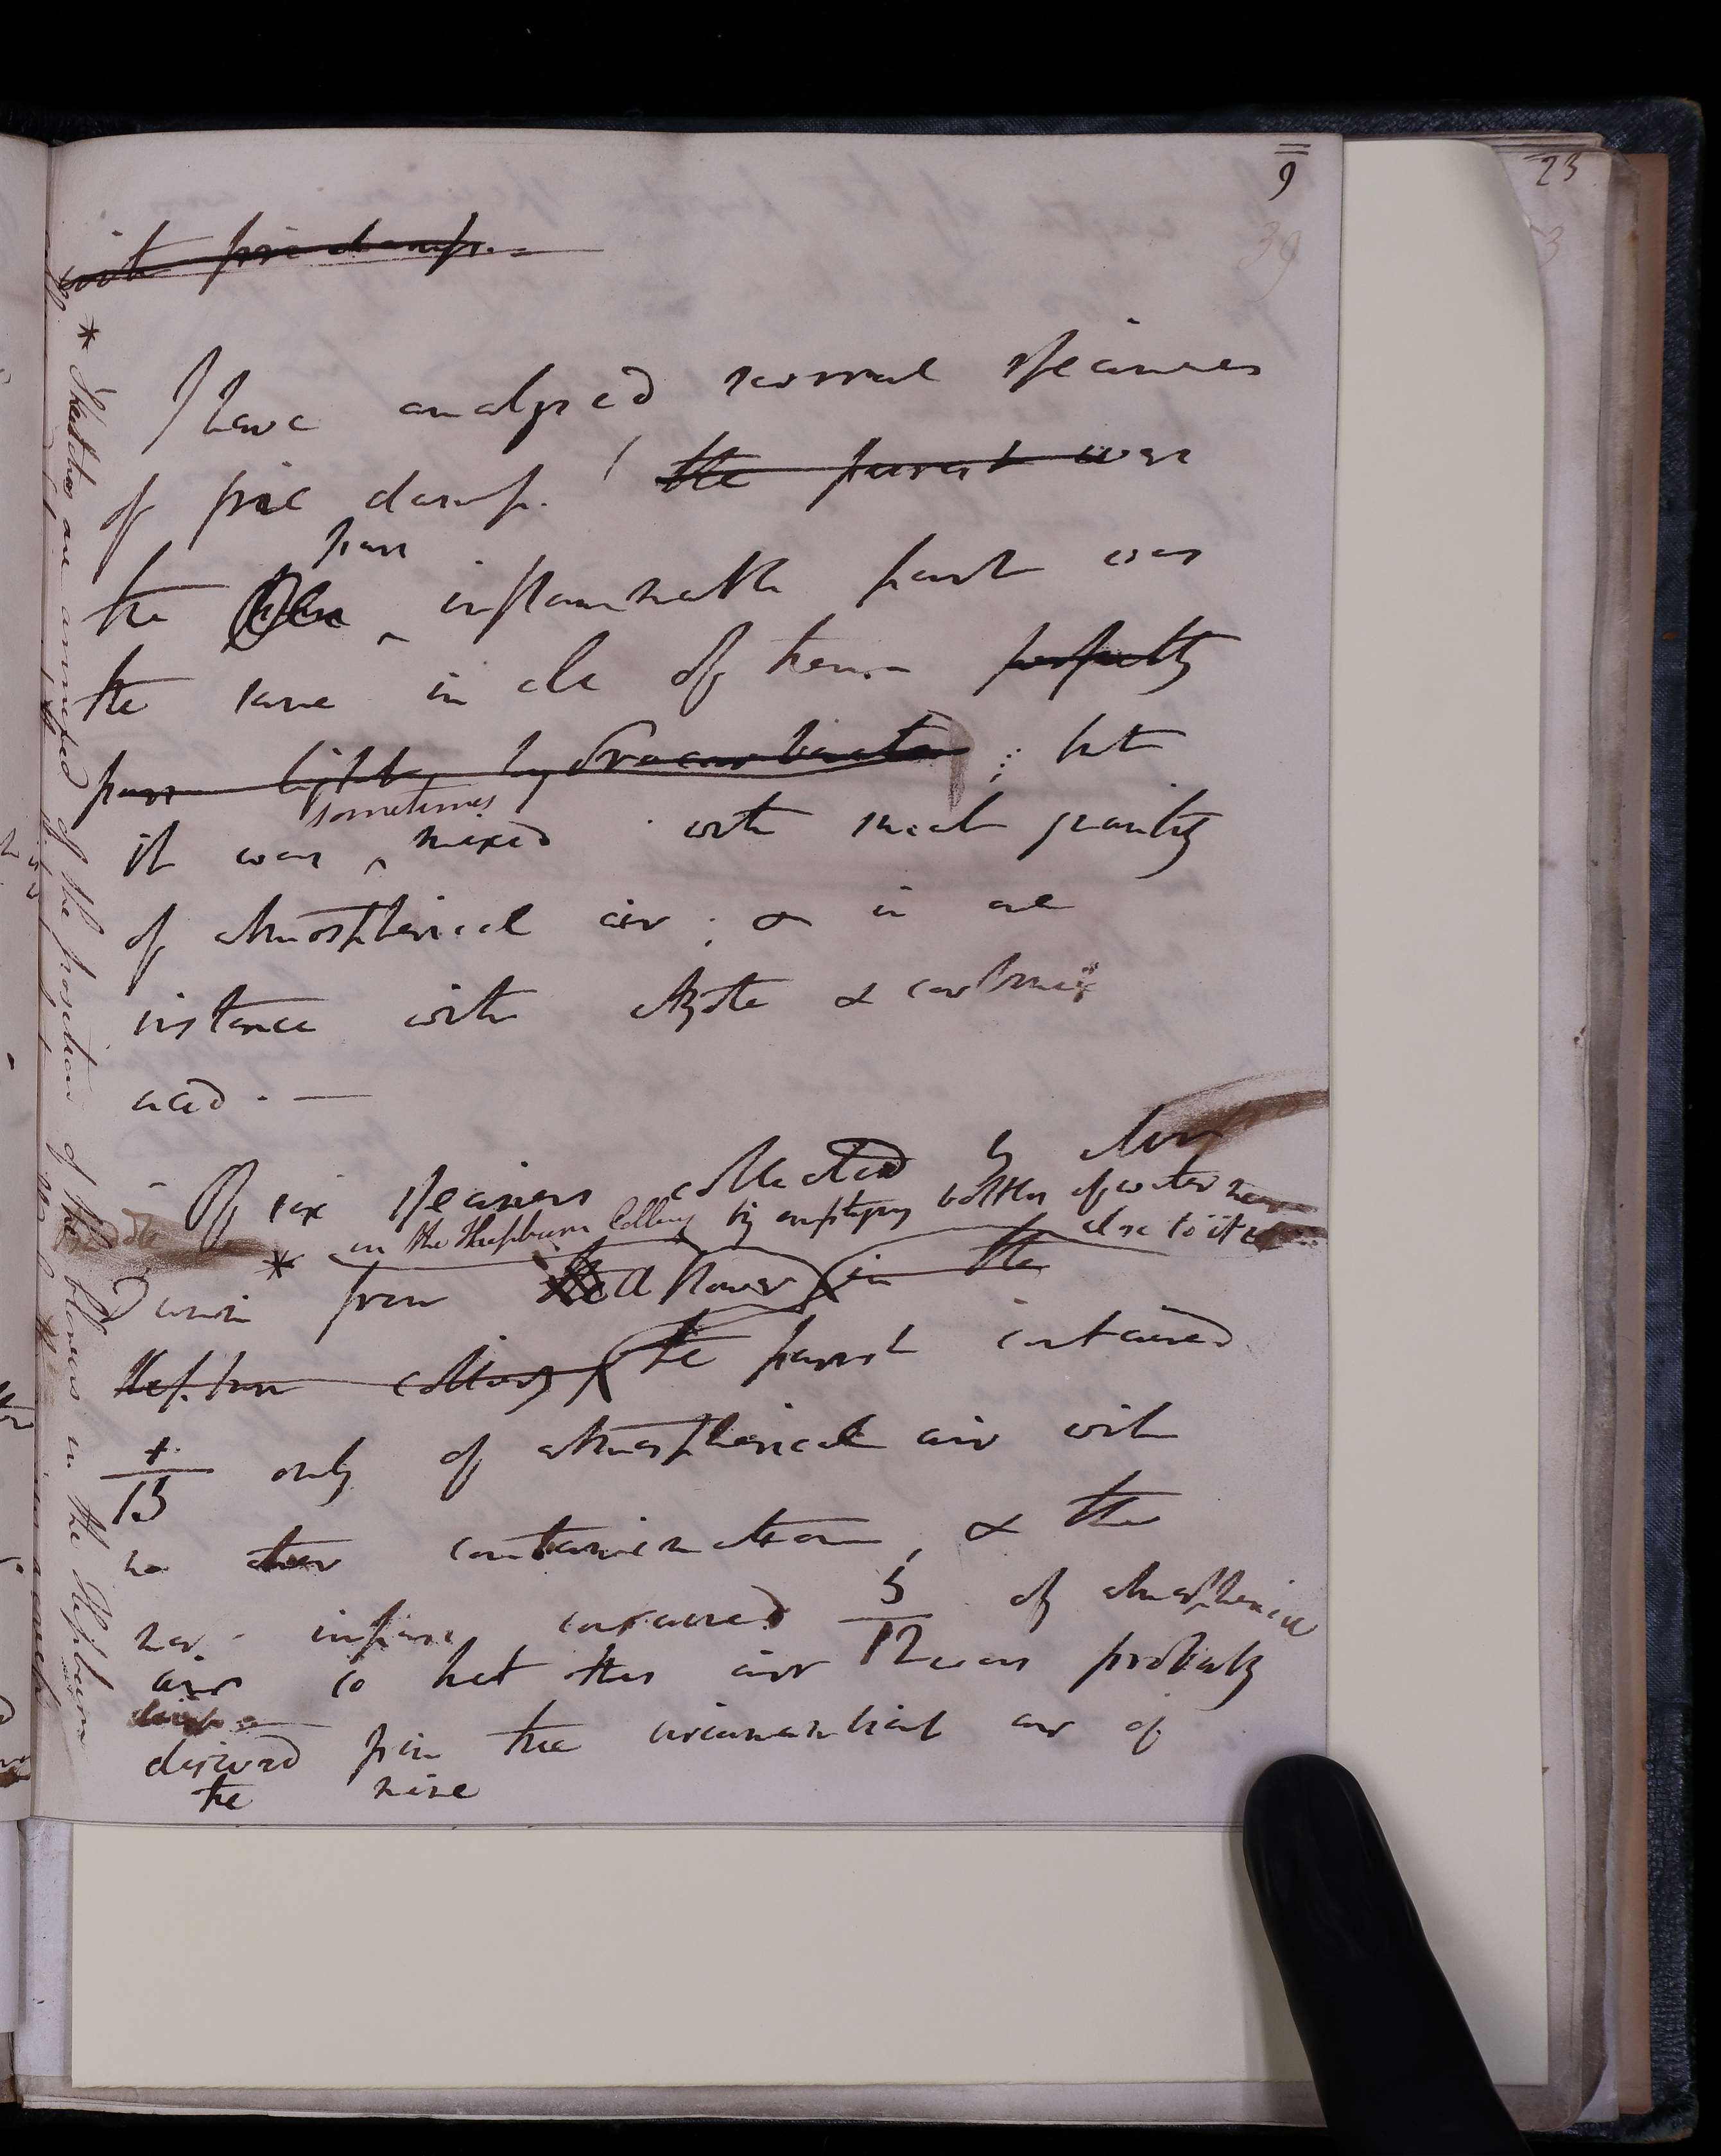 9
39
with fire damp. -
I have analysed several specimens
of fire damp. the purest was
the pure inflammable part was
the same in all of them perfectly
pure light hydrocarbonate ; but
it was sometimes mixed with small quantity
of atmospherical air ; & in one
instance with Azote & carbonic
acid. —
Of six specimens collected by Mr
in the Hepburn Colliery by emptying bottles of water
close to it
* Dunn from a blower in the
Hepburn colliery the purest contained
1/15 only of atmospherical air with
no other contamination, & the
most impure contained 5/12 of atmospherical
air so that this air was probably
derived from the circumambient air of
the mine
* Sketches are annexed of the positions of the blowers in the Hepburn
23